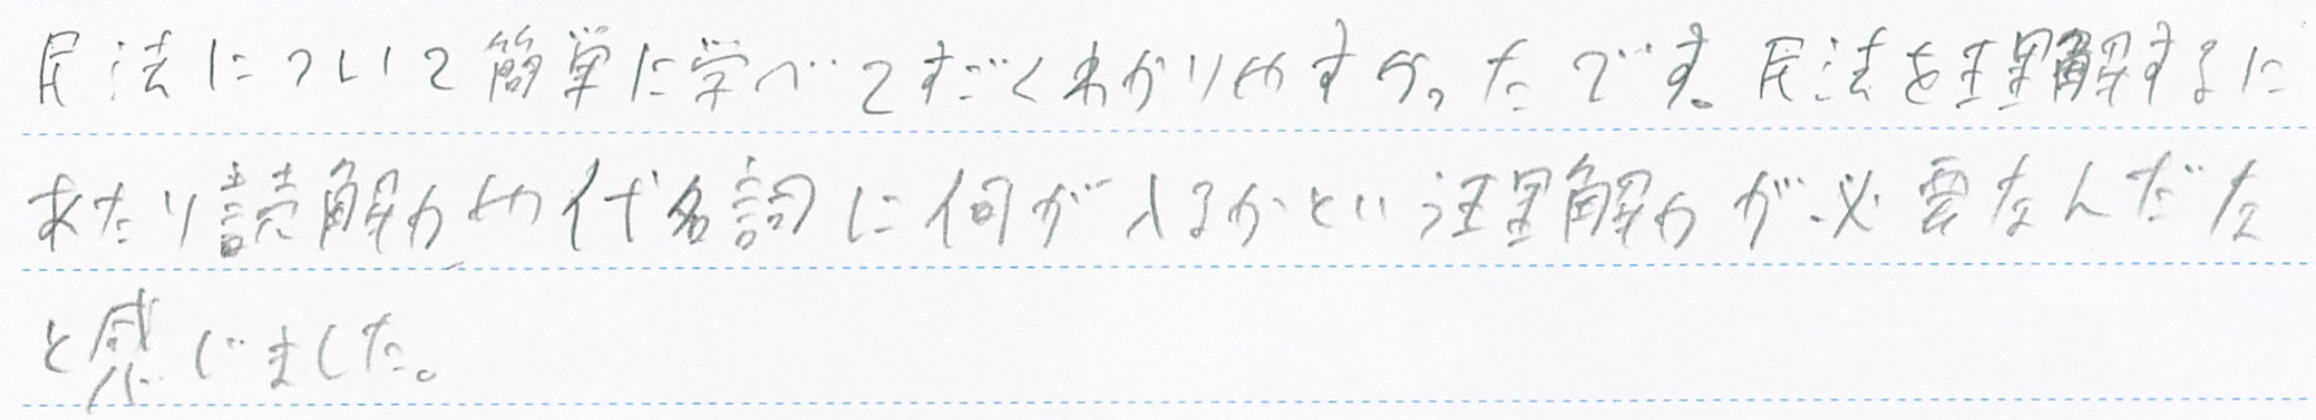 民法について簡単に学べてすごくわかりやすかったです。民法を理解するに
あたり読解力や代名詞に何が入るかという理解力が必要なんだな
と感じました。